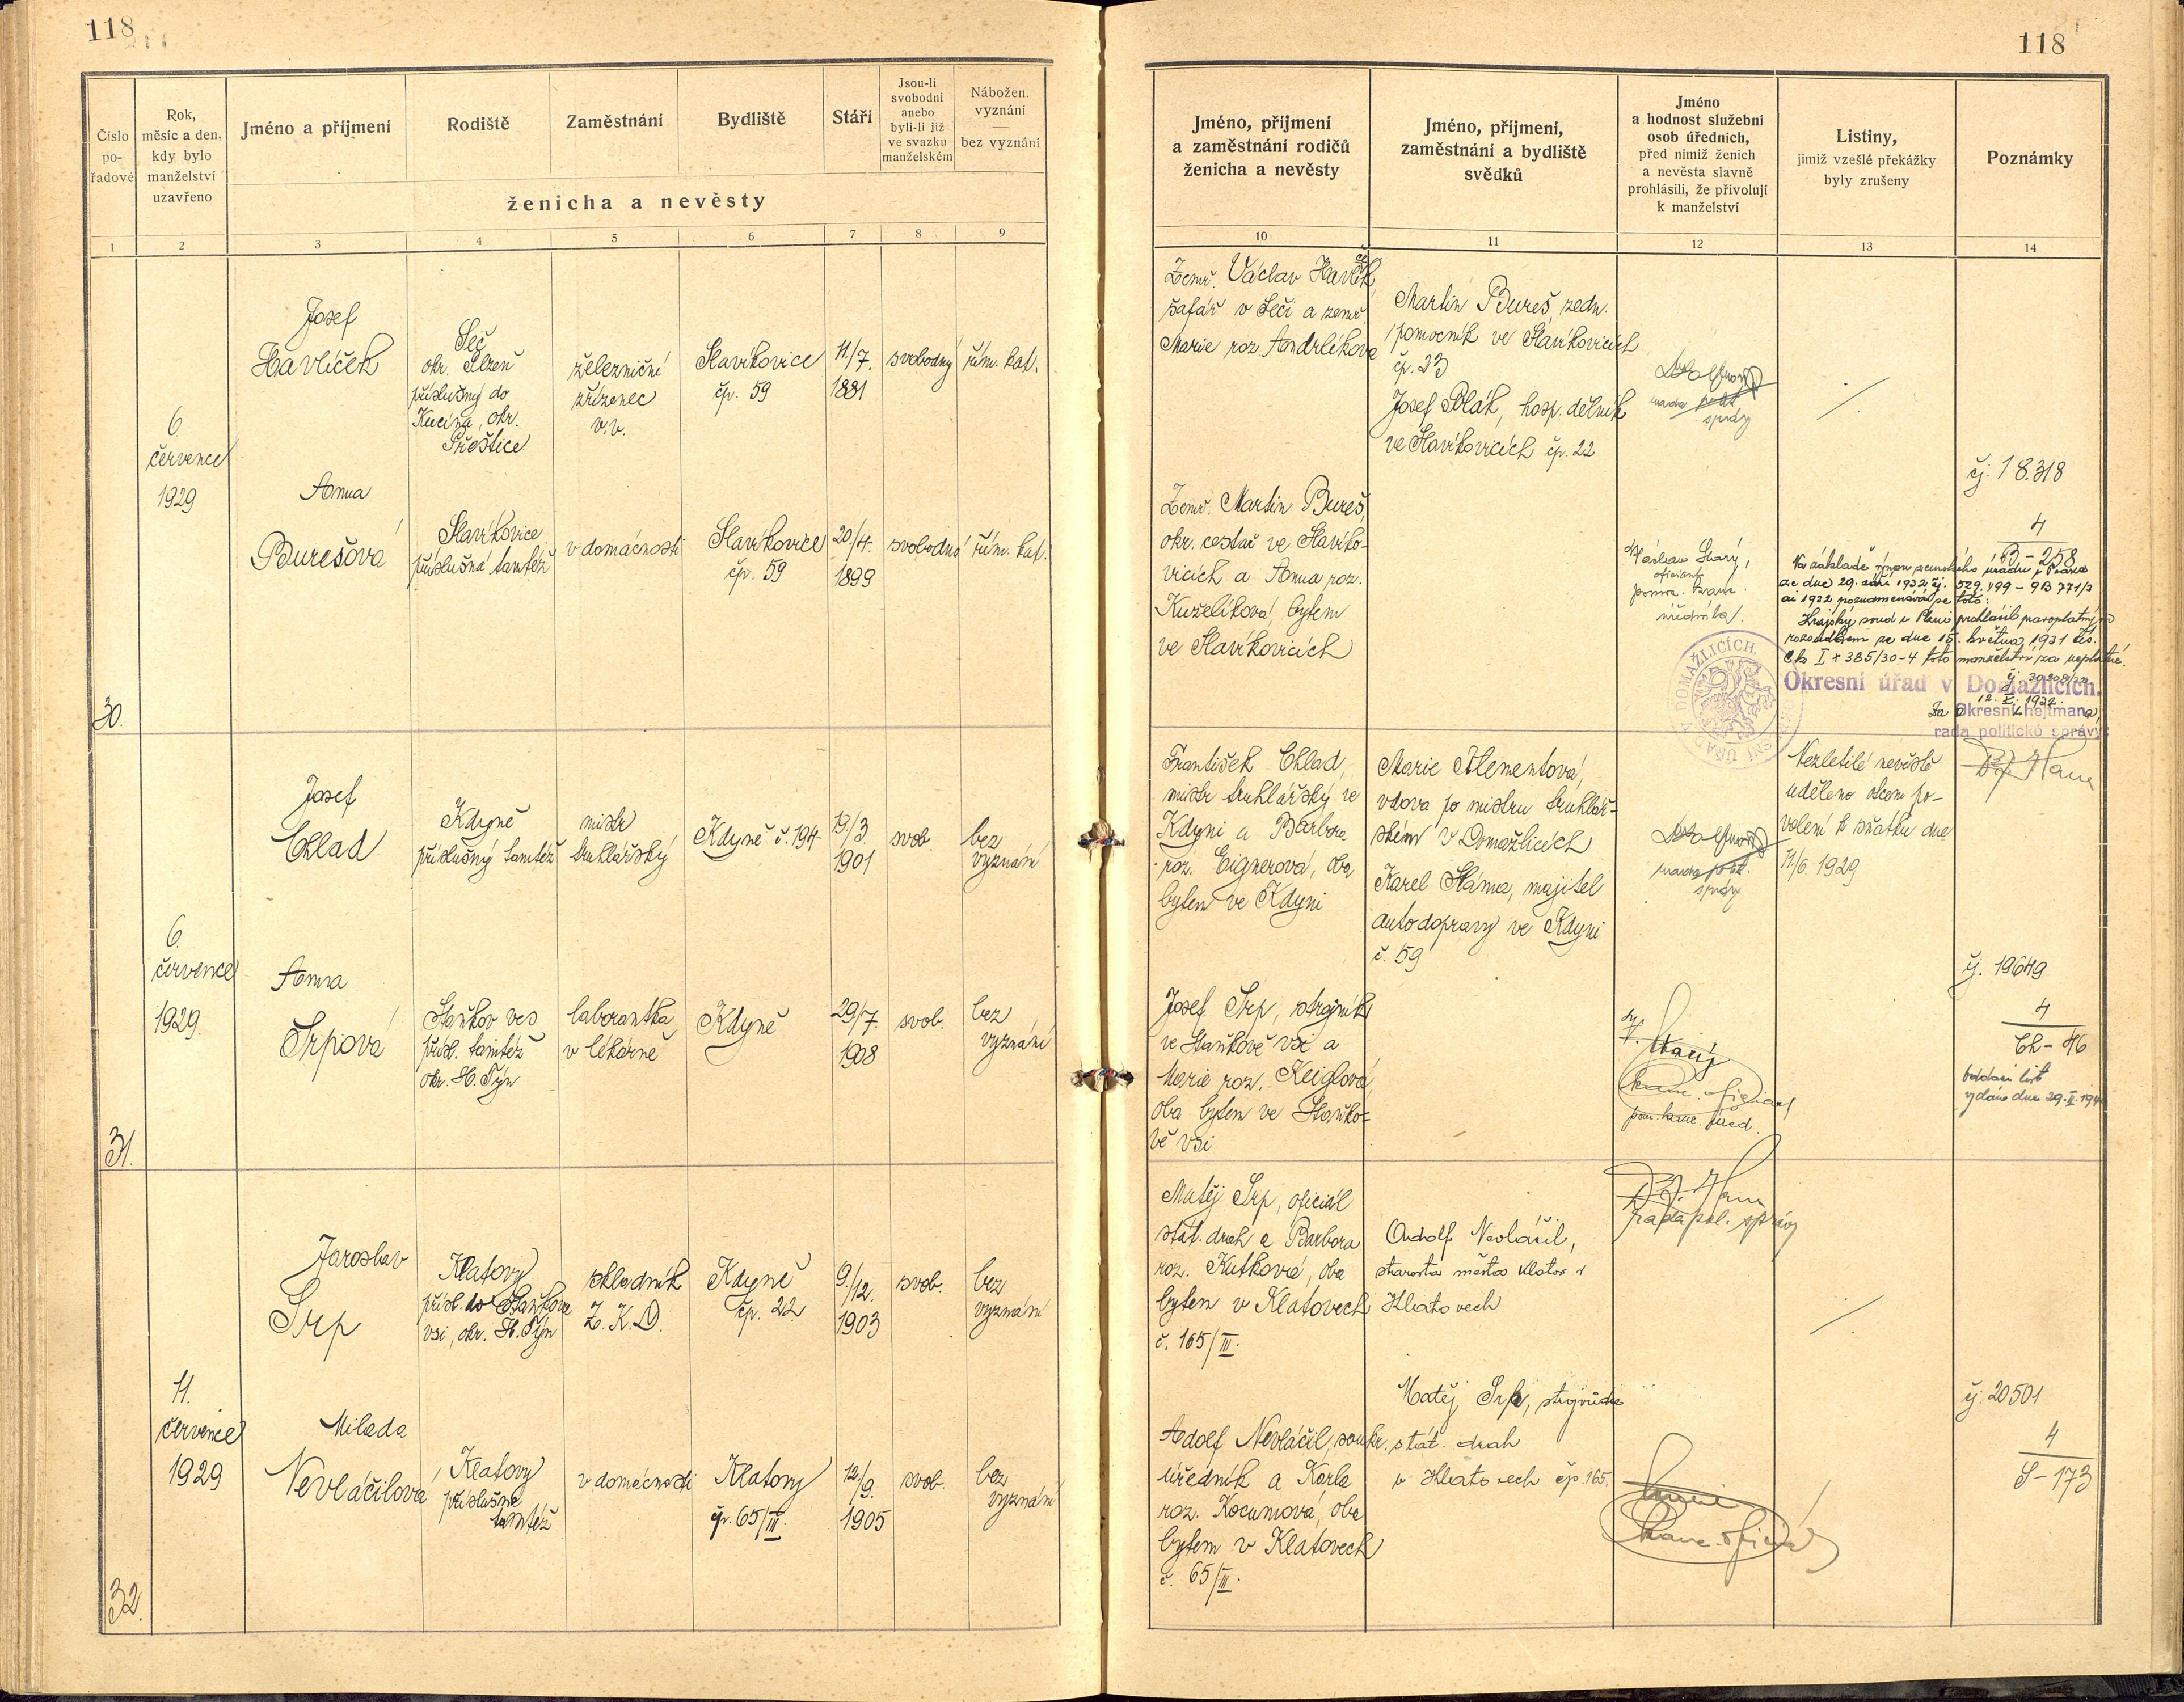 118
118
Číslo
po-
řadové
Rok,
měsíc a den,
kdy bylo
manželství
uzavřeno
Jméno a příjmení
Rodiště
Zaměstnání
Bydliště
Stáří
Jsou-li
svobodni
anebo
byli-li již
ve svazku
manželském
Nábožen.
vyznání
—
bez vyznání
ženicha a nevěsty
1 2 3 4 5 6 7 8 9
Jméno, příjmení
a zaměstnání rodičů
ženicha a nevěsty
Jméno, příjmení,
zaměstnání a bydliště
svědků
Jméno
a hodnost služební
osob úředních,
před nimiž ženich
a nevěsta slavně
prohlásili, že přivolují
k manželství
Listiny,
jimiž vzešlé překážky
byly zrušeny
Poznámky
10 11 12 13 14
30.
6.
července
1929
Josef
Havlíček
Seč
okr. Plzeň
příslušný do
Kucína, okr.
Přeštice
železniční
zřízenec
v.v.
Slavíkovice
čp. 59
11./7.
1881
svobodný
řím. kat.
Anna
Burešová
Slavíkovice
příslušná tamtéž
v domácnosti
Slavíkovice
čp. 59
20/4.
1899
svobodná
řím. kat.
Zemř. Václav Havlíček,
šafář v Seči a zemř.
Marie roz. Andrlíková
Zemř. Martin Bureš,
okr. cestář ve Slavíko-
vicích a Anna roz.
Kuželíková, bytem
ve Slavíkovicích
Martin Bureš, zedn.
pomocník ve Slavíkovicích
čp. 23
Josef Polák, hosp. dělník
ve Slavíkovicích čp. 22
rada polit.
správy
Václav Starý,
oficiant
pomoc. kanc.
úředníka.
čj. 18.318
4
B-258
Na základě výnosu zemského úřadu v Praze
ze dne 29. září 1932 čj. 529.499 - 9B 771/3
ai 1932 poznamenává se toto:
Krajský soud v Plzni prohlásil pravoplatným
rozsudkem ze dne 15. května 1931 čís.
Ck I + 385/30-4 toto manželství za neplatné.
12. X. 1932.
Okresní úřad v Domažlicích.
Za Okresní hejtmana,
rada politické správy:
31.
6.
července
1929.
Josef
Chlad
Kdyně
příslušný tamtéž
mistr
truhlářský
Kdyně č. 194
19/3
1901
svob.
bez
vyznání
Anna
Srpová
Staňkov ves
přísl. tamtéž
okr. H. Týn
laborantka
v lékárně
Kdyně
29/7.
1908
svob.
bez
vyznání
František Chlad,
mistr truhlářský ve
Kdyni a Barbora
roz. Eignerová, oba
bytem ve Kdyni
Josef Srp, strojník
ve Staňkově vsi a
Marie roz. Keiglová
oba bytem ve Staňko-
vě vsi
Marie Klementová,
vdova po mistru truhlář-
ském v Domažlicích
Karel Sláma, majitel
autodopravy ve Kdyni
č. 59
rada polit.
správy
V. Starý
kanc. oficiant
pom. kanc. úřed.
Nezletilé nevěstě
uděleno otcem po-
volení k sňatku dne
11./6. 1929
čj. 19649
4
Ch-46
oddací list
vydán dne
32.
11.
července
1929
Jaroslav
Srp
Klatovy
přísl. do Staňkova
vsi, okr. H. Týn
skladník
Z. K. D.
Kdyně
čp. 22
9./12.
1903
svob.
bez
vyznání
Milada
Nevláčilová
Klatovy
příslušná
tamtéž
v domácnosti
Klatovy
čp. 65/III.
12./9.
1905
svob.
bez
vyznání
Matěj Srp, oficiál
stát. drah a Barbora
roz. Kutková, oba
bytem v Klatovech
č. 165/III.
Adolf Nevláčil, soukr.
úředník a Karla
roz. Kocumová, oba
bytem v Klatovech
č. 65/III.
Nevláčil,
starosta města Klatov v
Klatovech
Matěj Srp, strojvůdce
stát. drah
v Klatovech čp. 165.
rada pol. správy
kanc. oficiál
čj. 20501
4
S-173